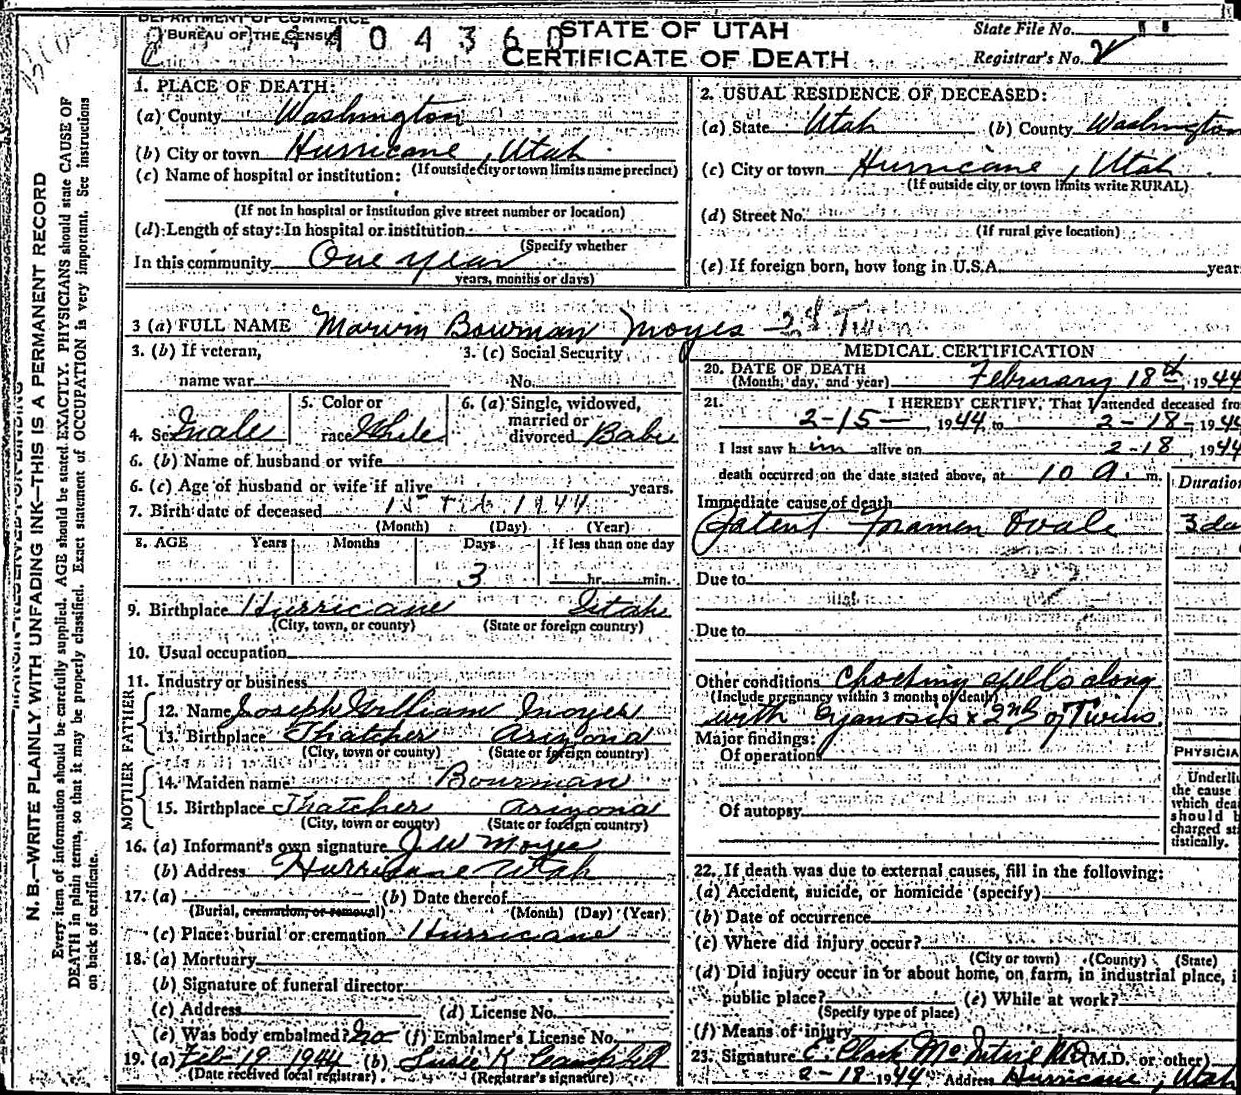 DEPARTMENT OF COMMERCE
BUREAU OF THE CENSUS
4 4 0 4 3 6 0
STATE OF UTAH
CERTIFICATE OF DEATH
State File No.
Registrar's No. 2
N. B.—WRITE PLAINLY WITH UNFADING INK—THIS IS A PERMANENT RECORD
Every item of information should be carefully supplied. AGE should be stated EXACTLY. PHYSICIANS should state CAUSE OF
DEATH in plain terms, so that it may be properly classified. Exact statement of OCCUPATION is very important. See instructions
on back of certificate.
1. PLACE OF DEATH:
(a) County Washington
(b) City or town Hurricane, Utah
(If outside city or town limits name precinct)
(c) Name of hospital or institution:
(If not in hospital or institution give street number or location)
(d) Length of stay: In hospital or institution
(Specify whether
In this community One year
years, months or days)
2. USUAL RESIDENCE OF DECEASED:
(a) State Utah (b) County Washington
(c) City or town Hurricane, Utah
(If outside city or town limits write RURAL)
(d) Street No.
(If rural give location)
(e) If foreign born, how long in U.S.A. year
3 (a) FULL NAME Marvin Bowman Moyes - 2d Twin
3. (b) If veteran, 3. (c) Social Security
name war No.
4. Sex male 5. Color or race White 6. (a) Single, widowed, married or divorced Babe
6. (b) Name of husband or wife
6. (c) Age of husband or wife if alive years.
7. Birth date of deceased 15 Feb 1944
(Month) (Day) (Year)
8. AGE Years Months Days If less than one day
3 hr. min.
9. Birthplace Hurricane Utah
(City, town, or county) (State or foreign country)
10. Usual occupation
11. Industry or business
FATHER
12. Name Joseph William Moyes
13. Birthplace Thatcher Arizona
(City, town or county) (State or foreign country)
MOTHER
14. Maiden name Bowman
15. Birthplace Thatcher Arizona
(City, town or county) (State or foreign country)
16. (a) Informant's own signature J W Moyes
(b) Address Hurricane Utah
17. (a) (b) Date thereof
(Burial, cremation, or removal) (Month) (Day) (Year)
(c) Place: burial or cremation Hurricane
18. (a) Mortuary
(b) Signature of funeral director
(c) Address (d) License No.
(e) Was body embalmed? no (f) Embalmer's License No. "
19. (a) Feb-19-1944 (b) Susie K Campbell
(Date received local registrar) (Registrar's signature)
MEDICAL CERTIFICATION
20. DATE OF DEATH
(Month, day, and year) February 18th, 1944
21. I HEREBY CERTIFY, That I attended deceased from
2-15-, 1944, to 2-18-, 1944
I last saw him alive on 2-18, 1944
death occurred on the date stated above, at 10 a. m.
Duration
Immediate cause of death
Patent Foramen Ovale 3 da
Due to
Due to
Other conditions Choking spells along
(Include pregnancy within 3 months of death)
with Cyanosis & 2nd of Twins
Major findings:
Of operation
Of autopsy
PHYSICIA
Underli
the cause
which dea
should b
charged st
tistically.
22. If death was due to external causes, fill in the following:
(a) Accident, suicide, or homicide (specify)
(b) Date of occurrence
(c) Where did injury occur?
(City or town) (County) (State)
(d) Did injury occur in or about home, on farm, in industrial place, i
public place? (e) While at work?
(Specify type of place)
(f) Means of injury
23. Signature E. Clark McIntire MD (M.D. or other)
2-18 1944 Address Hurricane, Utah